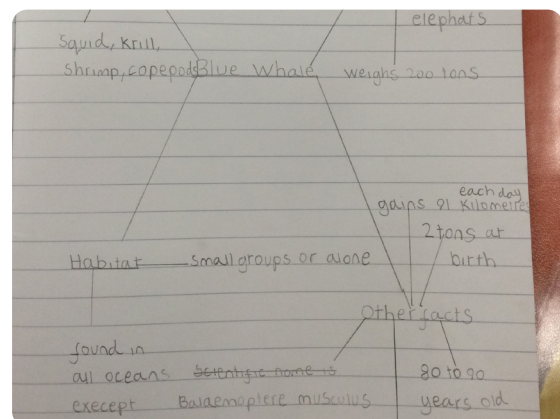 elephats
Squid, Krill,
Shrimp, copepods
Blue Whale
weighs 200 tons
each day
gains 91 Kilometres
2 tons at
birth
Habitat
Small groups or alone
Other facts
found in
all oceans
execept
Scientific name is
Balaemoptere musculus
80 to 90
years old